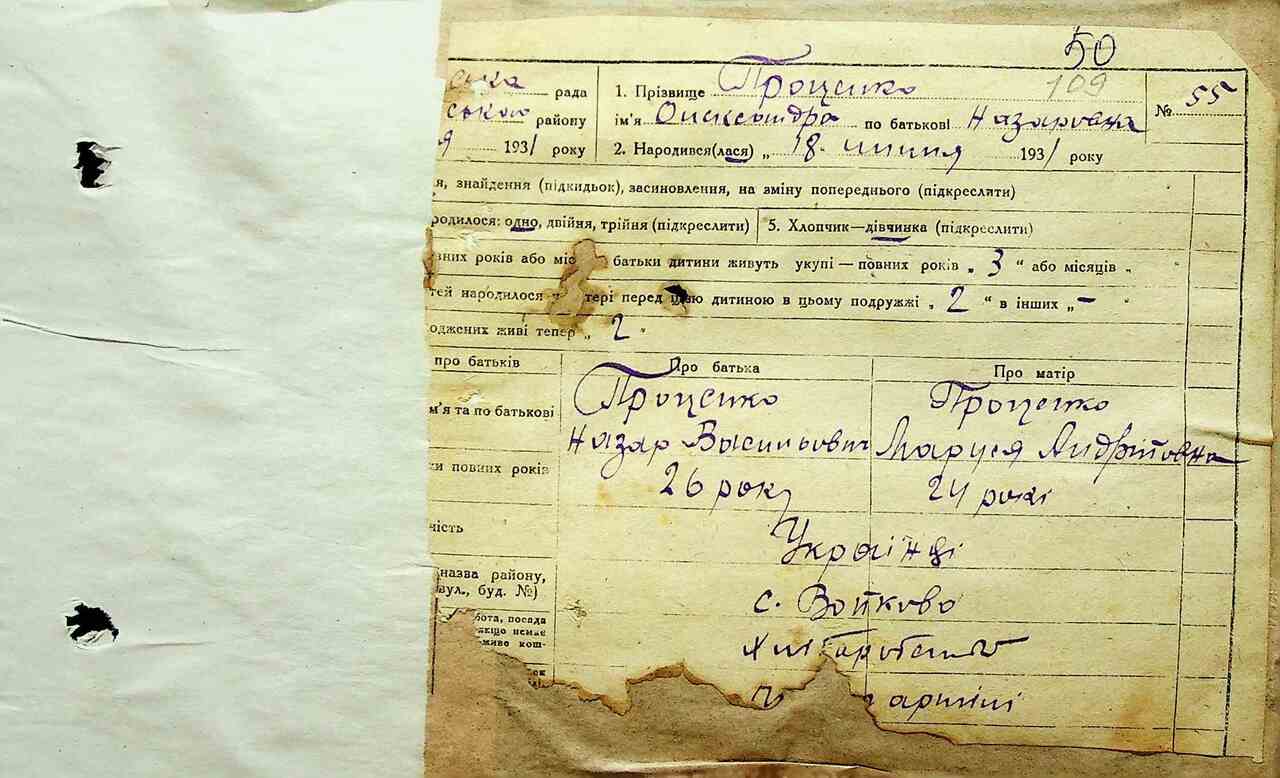 50
109
ська рада 1. Прізвище Проценко № 55
ського району ім'я Олександра по батькові Назаровна
1931 року 2. Народився(лася) „ 18. липня 1931 року
я, знайдення (підкидьок), засиновлення, на зміну попереднього (підкреслити)
родилося: одно, двійня, трійня (підкреслити) 5. Хлопчик—дівчинка (підкреслити)
вних років або міс батьки дитини живуть укупі — повних років „ 3 “ або місяців „ “
тей народилося тері перед цією дитиною в цьому подружжі „ 2 “ в інших „ – “
оджених живі тепер „ 2 “
про батьків Про батька Про матір
м'я та по батькові Проценко Проценко
Назар Васильович Маруся Андрійовна
ки повних років 26 рок 24 рокі
ність Українці
назва району,
вул., буд. №) с. Войково
бота, посада
якщо немає
живе кош-